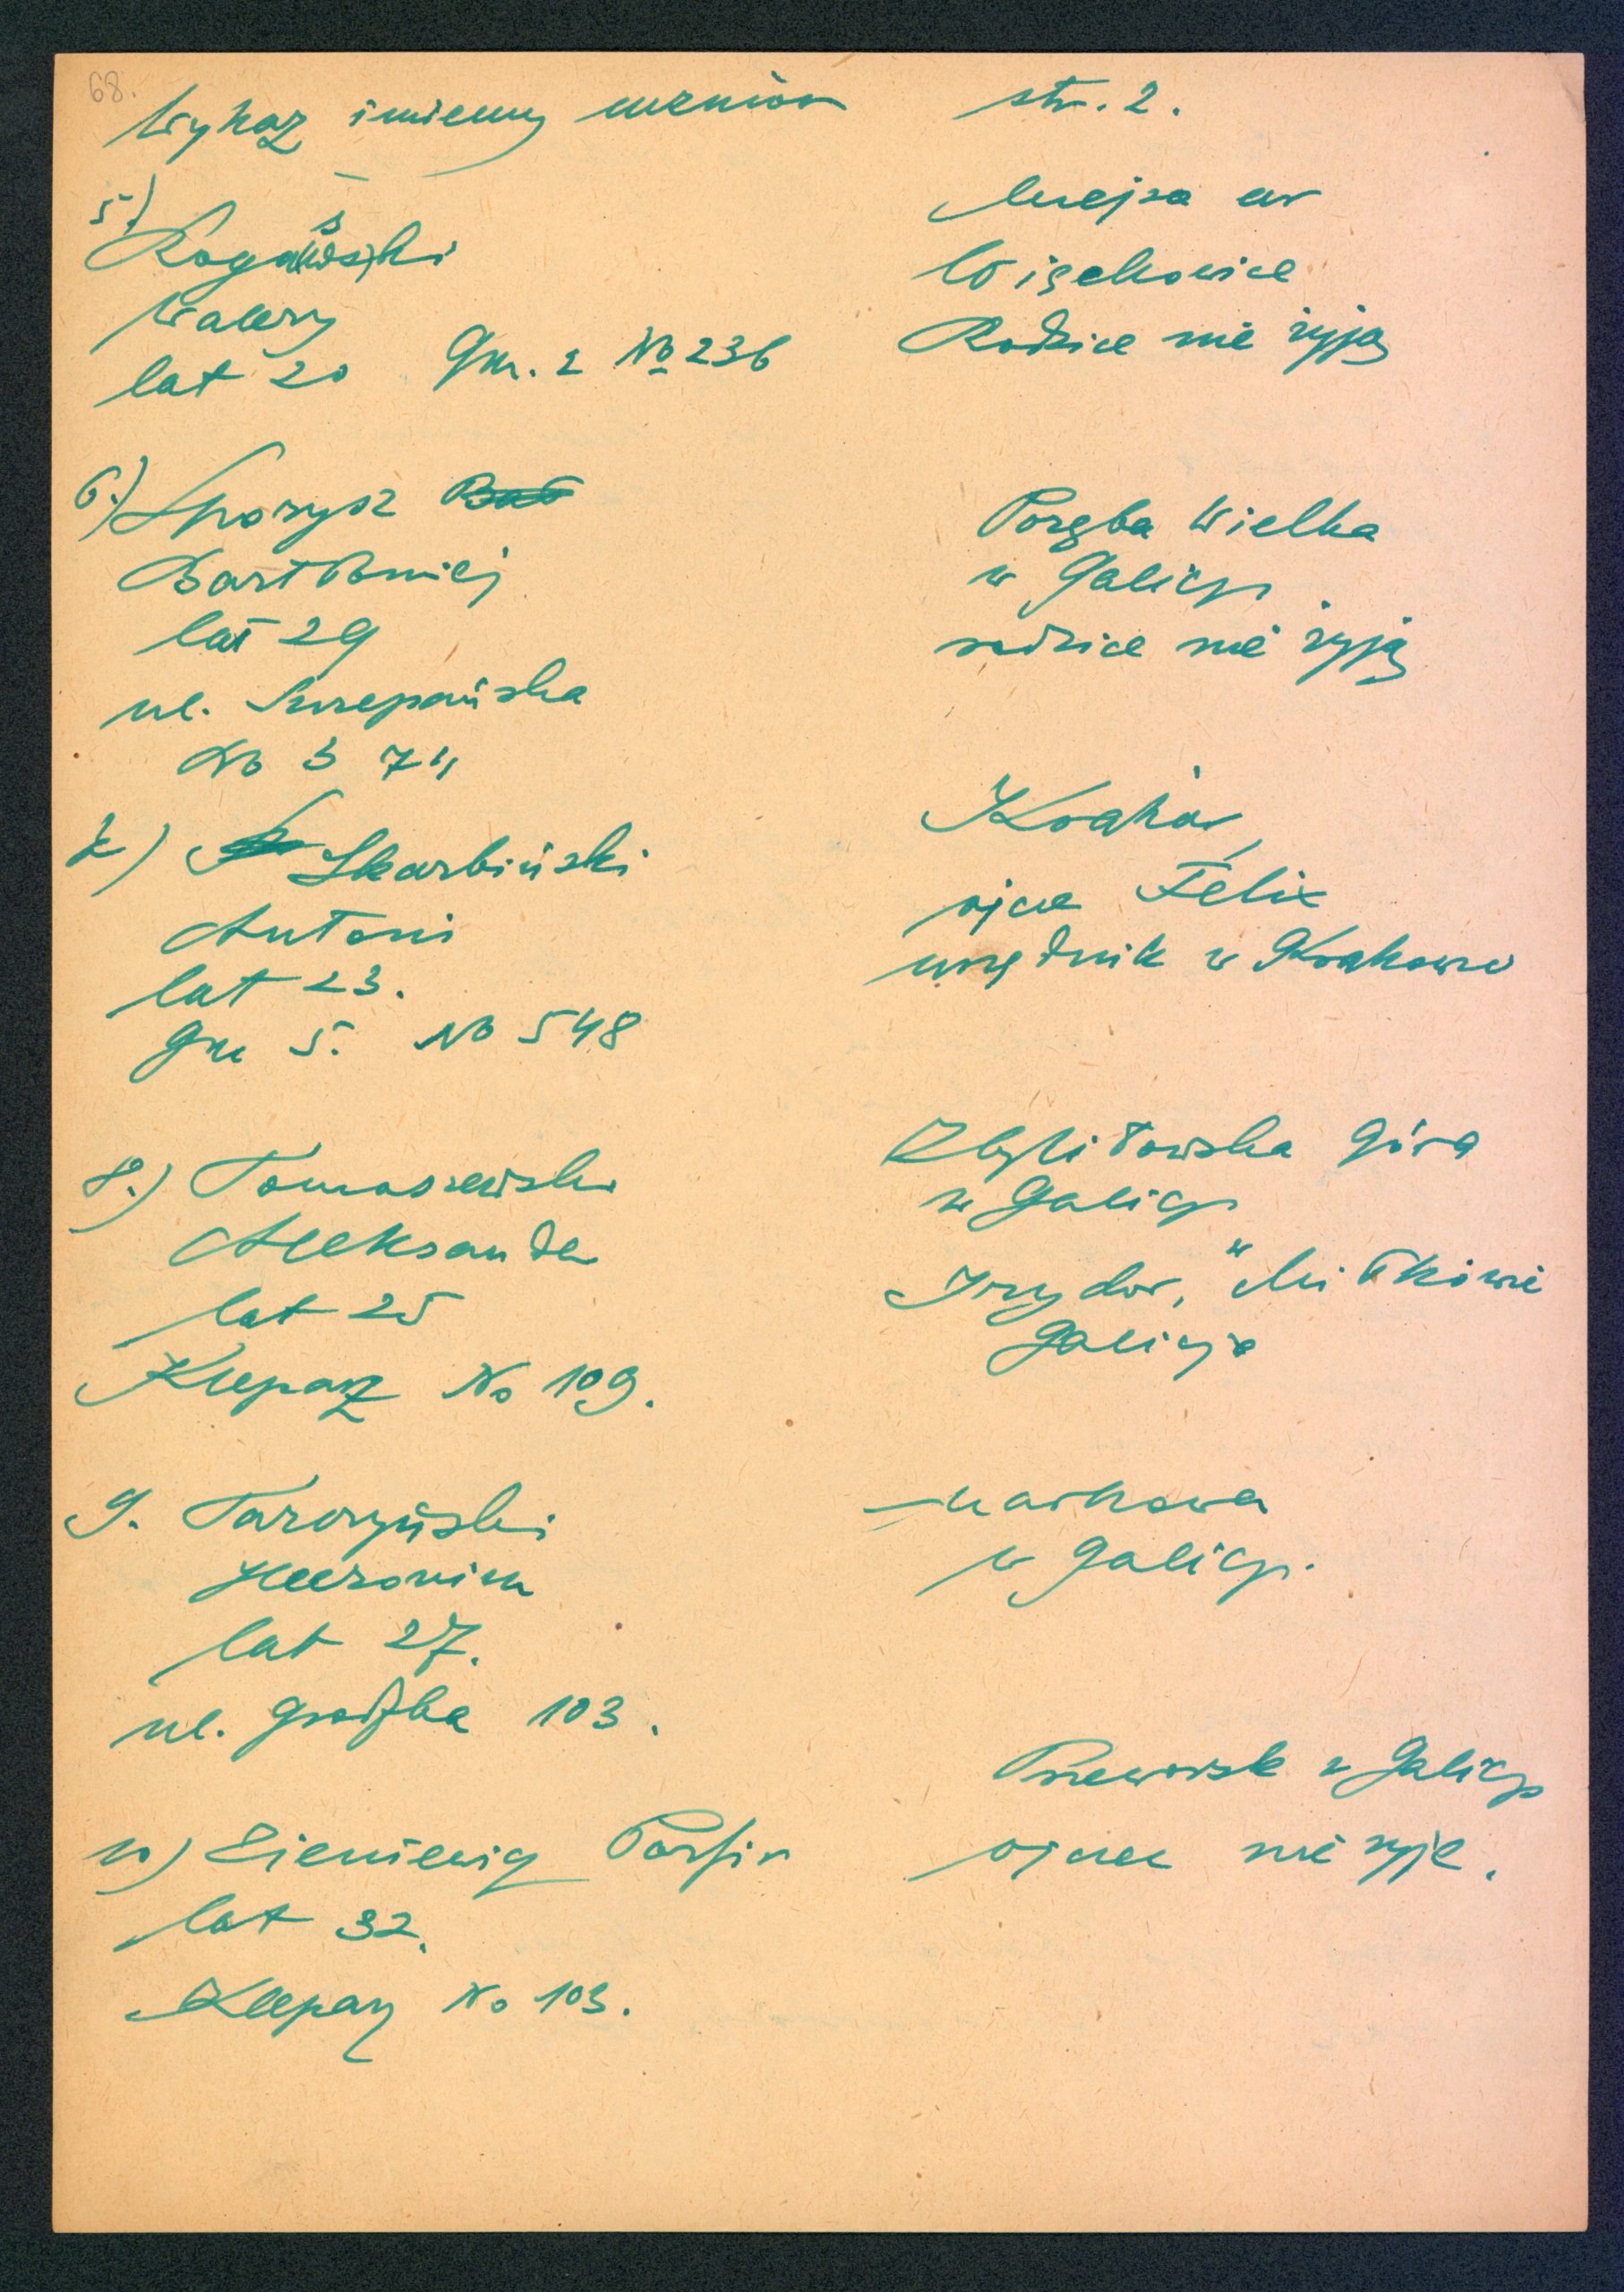 68.
Wykaz imienny uczniów str. 2.
5)
Rogalski
Walery
lat 20 Gm. 2 No 236
w
Więckowice
Rodzice nie żyją
6.) Sporysz
Bartłomiej
lat 29
ul. Szczepańska
No 3 74
Poręba Wielka
w Galicji
rodzice nie żyją
7.) Skarbiński
Antoni
lat 23.
Gm 5. No 548
Kraków,
ojciec Felix
urzędnik w Krakowie
8.) Tomaszewski
Aleksander
lat 25
Kleparz No 109.
Zbylitowska Góra
w Galicji
Izydor, w Miłkowie
Galicja
9. Tarczyński
Hieronim
lat 27.
ul. Grodzka 103.
Markowa
w Galicji.
10) Zieniewicz Porfir
lat 32.
Kleparz No 103.
Przeworsk w Galicji
ojciec nie żyje.